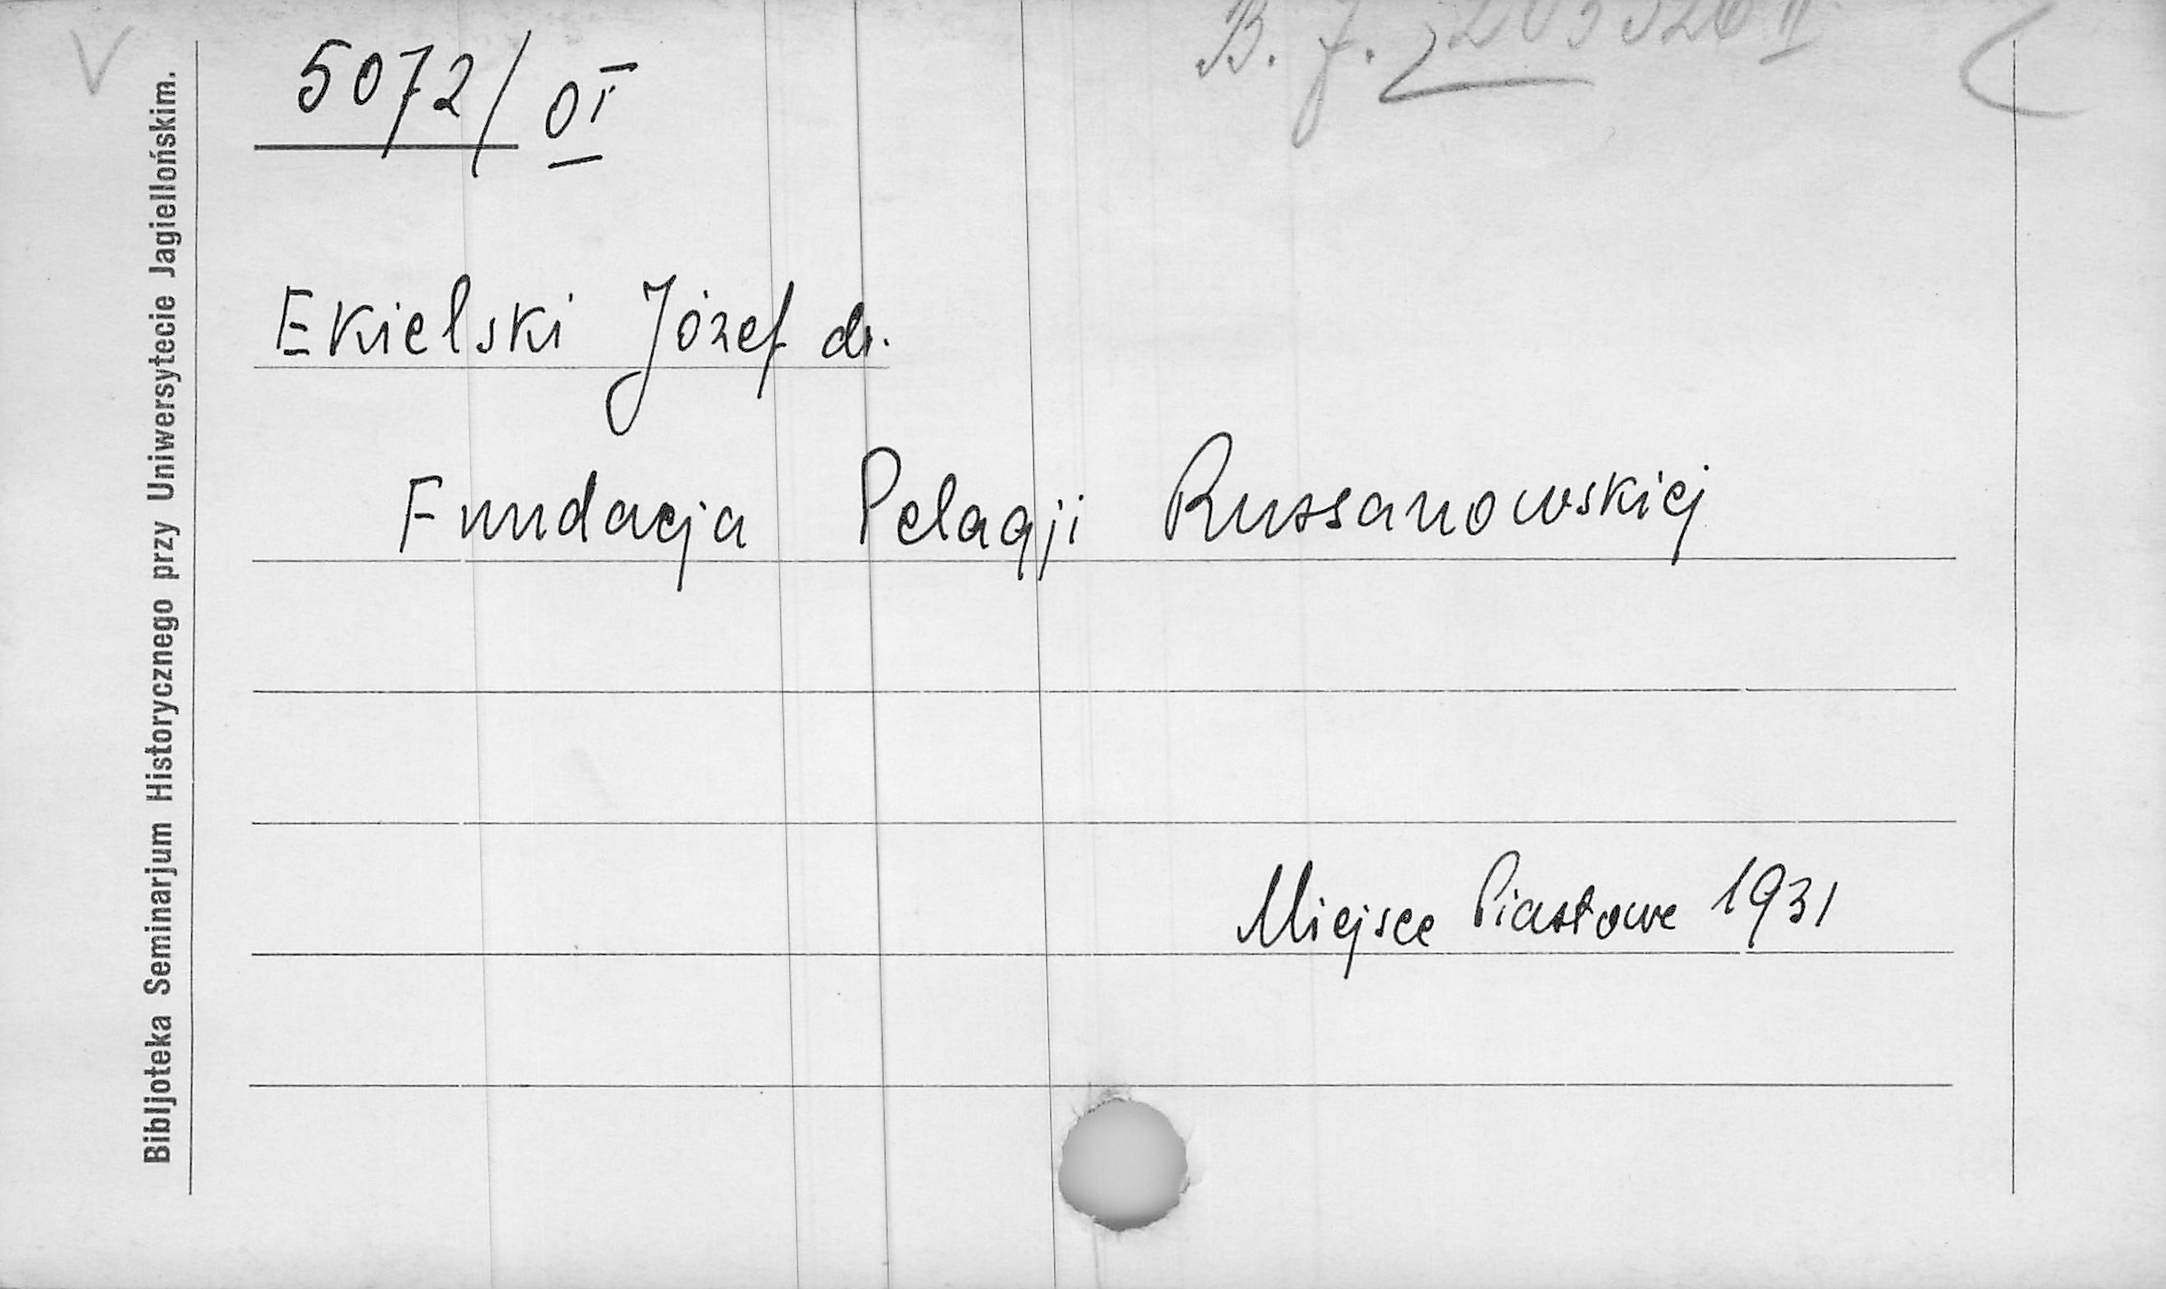 5072/OI
B. J.
Ekielski Józef dr.
Fundacja Pelagji Russanowskiej
Miejsce Piastowe 1931
Bibljoteka Seminarjum Historycznego przy Uniwersytecie Jagiellońskim.